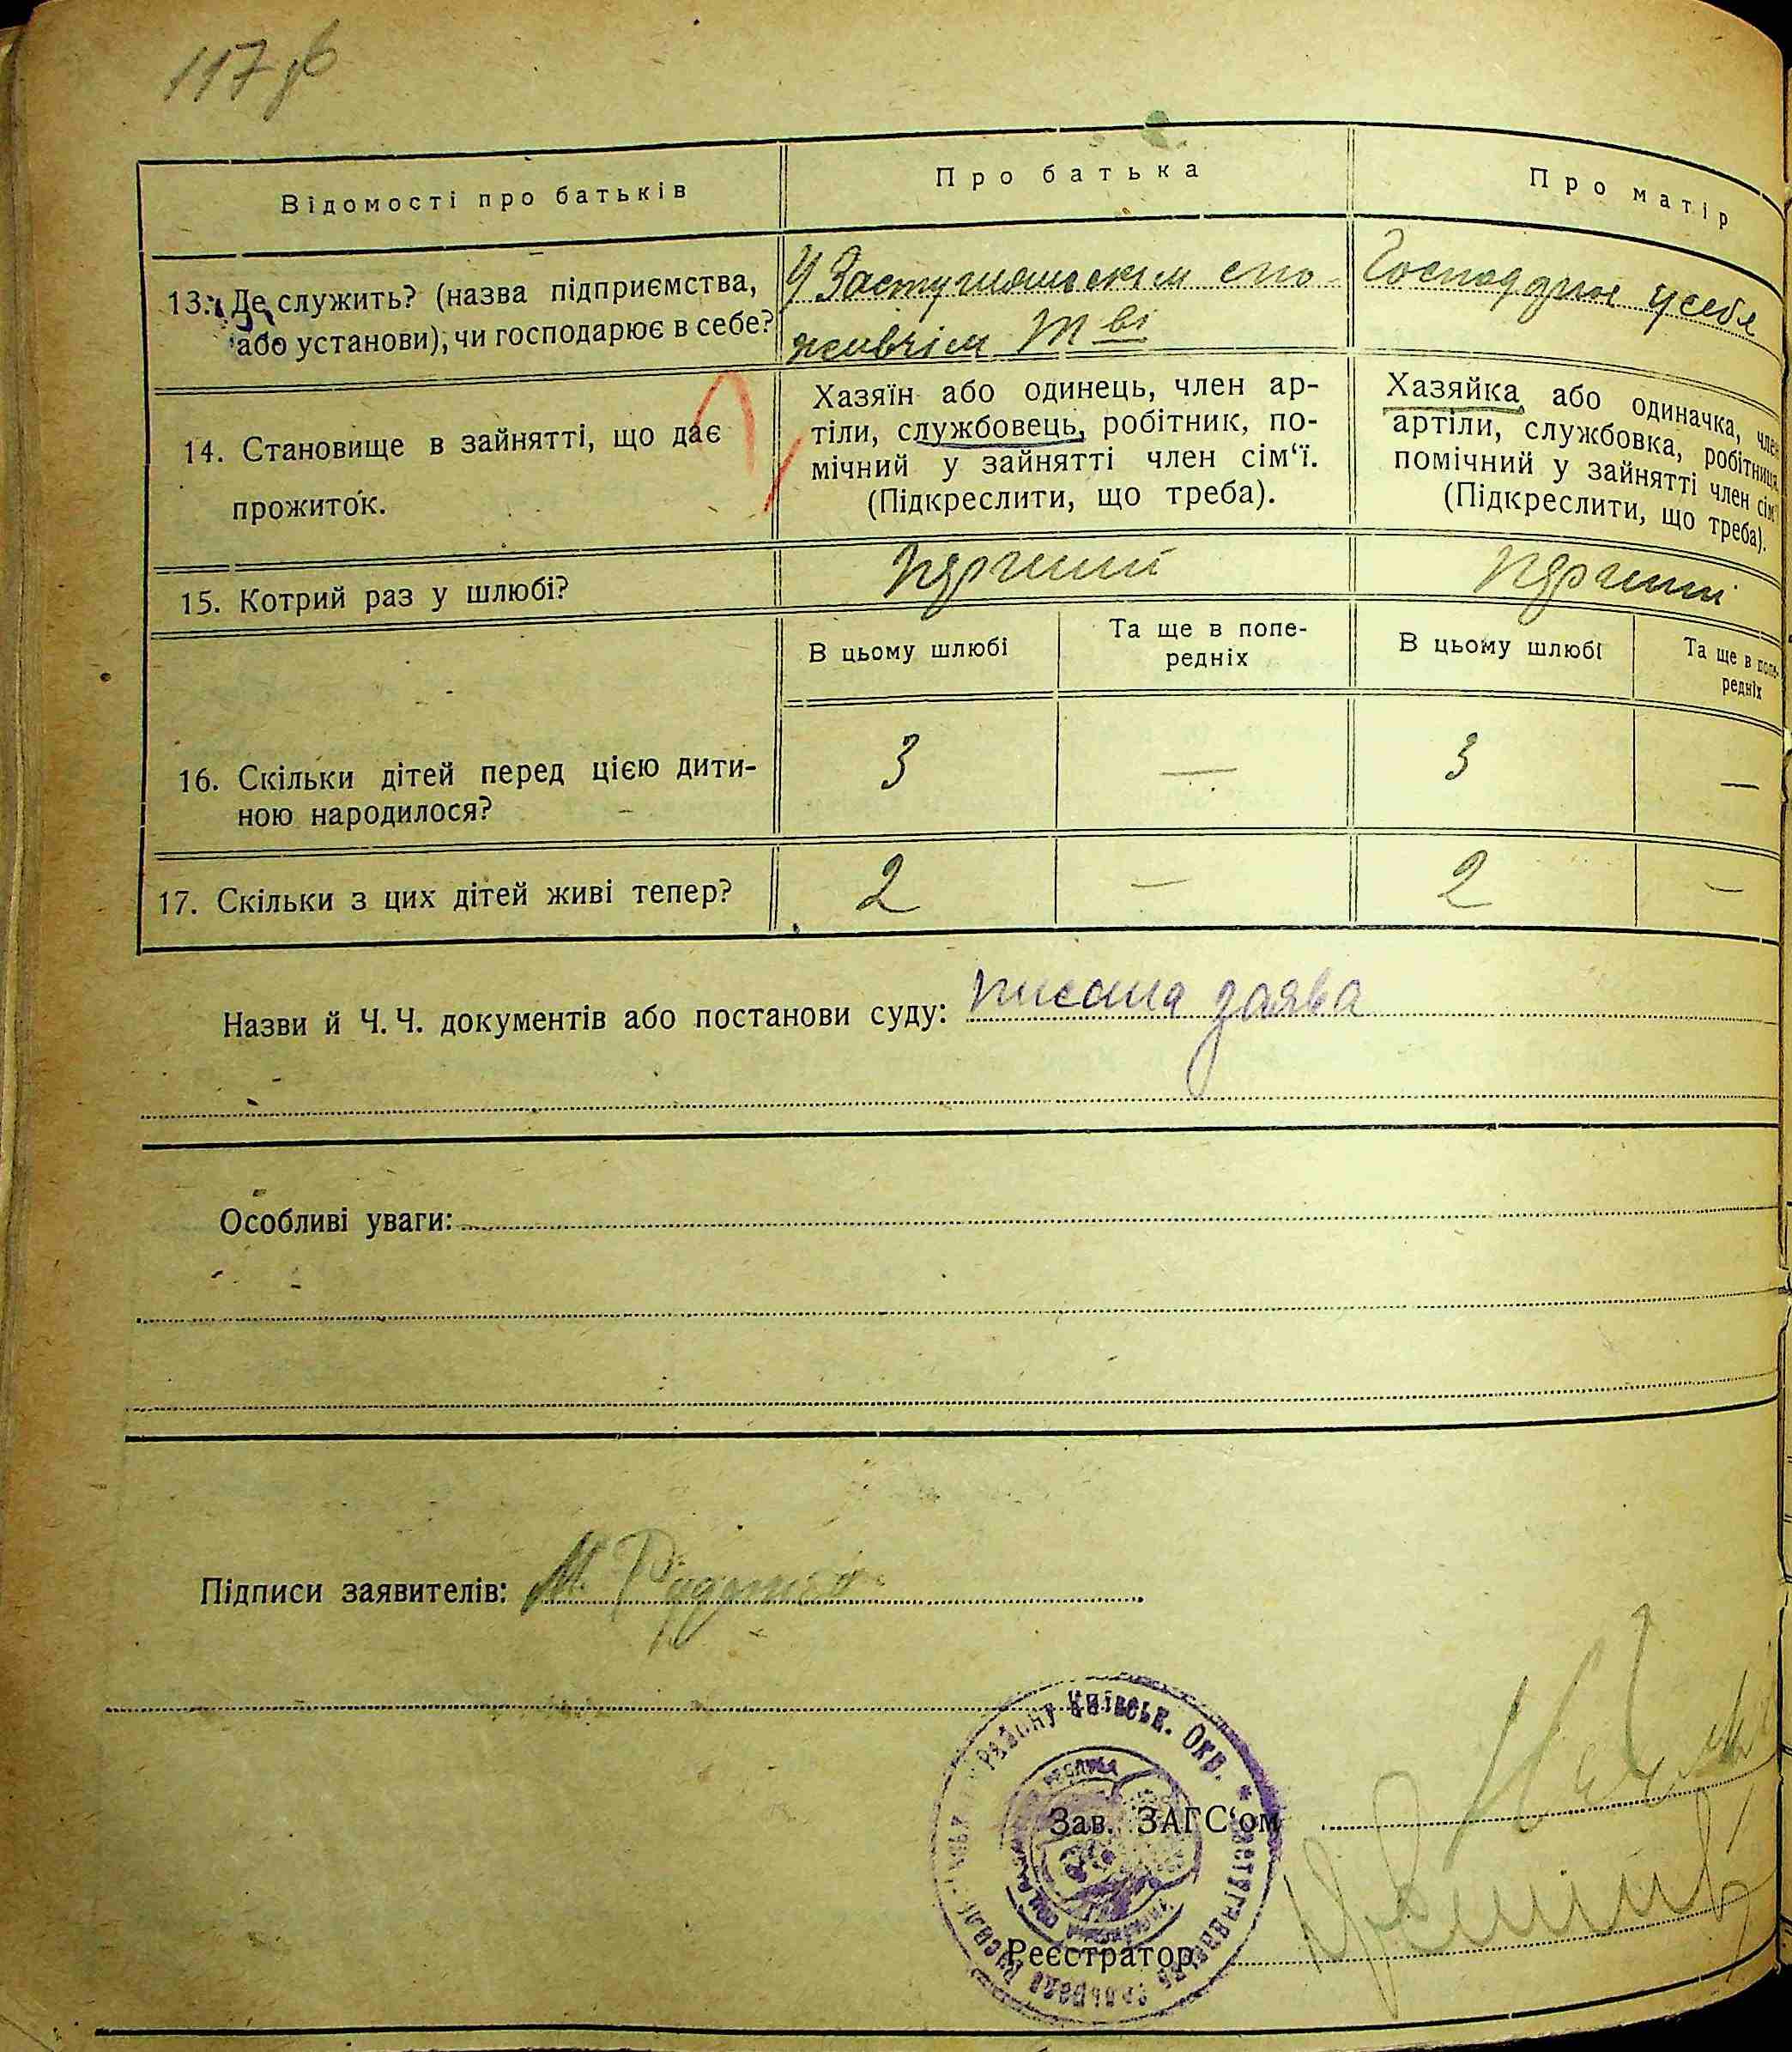 117 зб
Відомості про батьків
Про батька
Про матір
13. Де служить? (назва підприємства,
або установи), чи господарює в себе?
У Застугнянськім спо-
живчім Т-ві
Господарює у себе
14. Становище в зайнятті, що дає
прожиток.
Хазяїн або одинець, член ар-
тіли, службовець, робітник, по-
мічний у зайнятті член сім‘ї.
(Підкреслити, що треба).
Хазяйка або одиначка, член
артіли, службовка, робітниця,
помічний у зайнятті член сім‘ї
(Підкреслити, що треба).
15. Котрий раз у шлюбі?
Перший
Перший
В цьому шлюбі
Та ще в попе-
редніх
В цьому шлюбі
Та ще в попе-
редніх
16. Скільки дітей перед цією дити-
ною народилося?
3
—
3
—
17. Скільки з цих дітей живі тепер?
2
—
2
—
Назви й Ч. Ч. документів або постанови суду: писана заява
Особливі уваги:
Підписи заявителів: М.
Району Київськ. Окр.
Зав. ЗАГС‘ом
Реєстратор